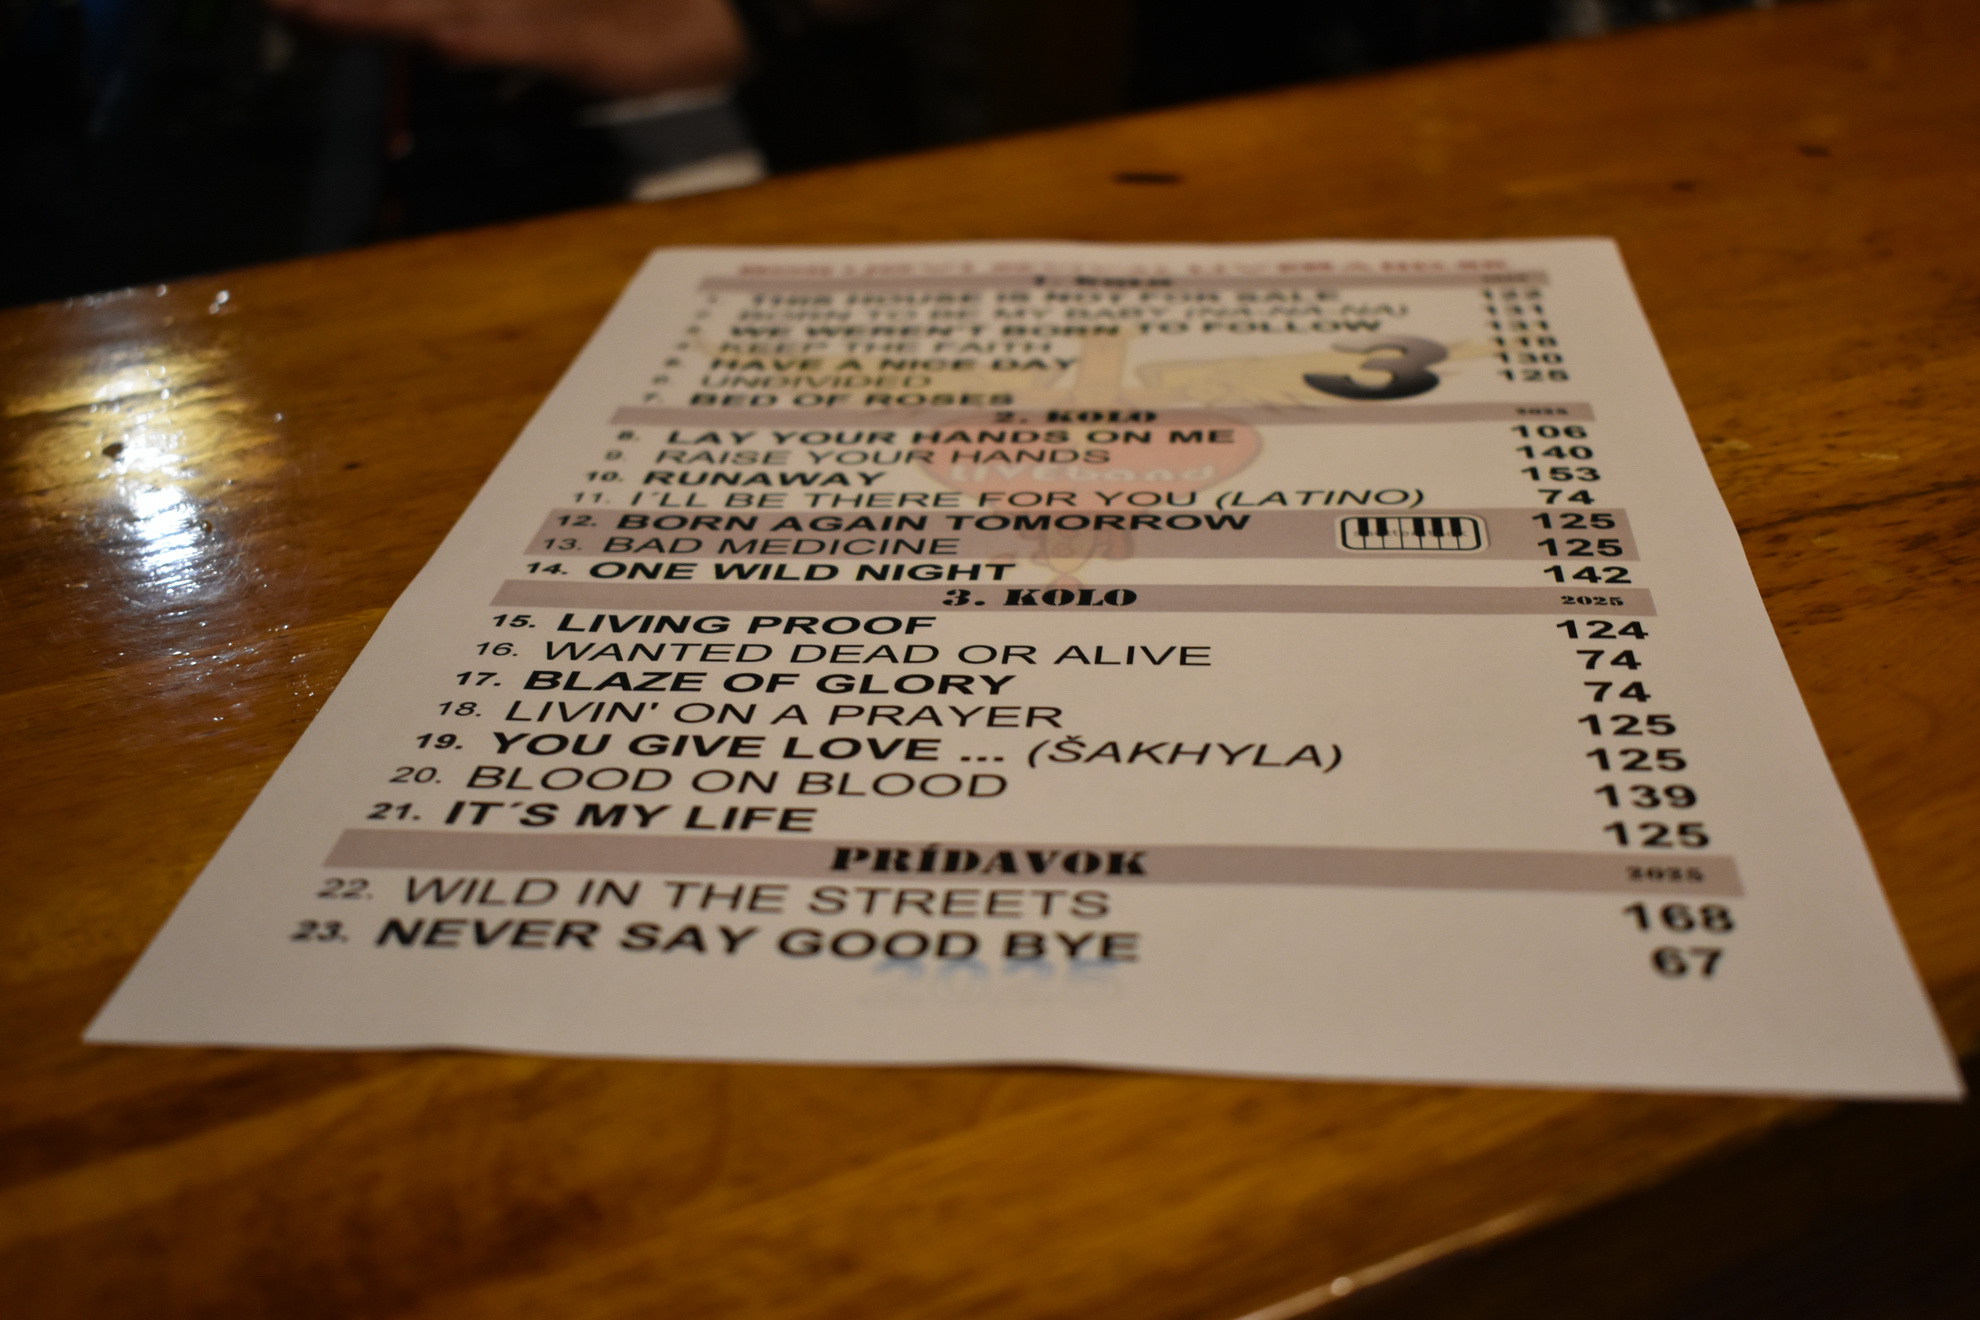 1. KOLO
1. THIS HOUSE IS NOT FOR SALE 122
2. BORN TO BE MY BABY (NA-NA-NA) 131
3. WE WEREN'T BORN TO FOLLOW 131
4. KEEP THE FAITH 118
5. HAVE A NICE DAY 130
6. UNDIVIDED 125
7. BED OF ROSES
3
2. KOLO 2025
8. LAY YOUR HANDS ON ME 106
9. RAISE YOUR HANDS 140
10. RUNAWAY 153
LIVEband
11. I´LL BE THERE FOR YOU (LATINO) 74
12. BORN AGAIN TOMORROW 125
13. BAD MEDICINE 125
14. ONE WILD NIGHT 142
3. KOLO 2025
15. LIVING PROOF 124
16. WANTED DEAD OR ALIVE 74
17. BLAZE OF GLORY 74
18. LIVIN' ON A PRAYER 125
19. YOU GIVE LOVE ... (ŠAKHYLA) 125
20. BLOOD ON BLOOD 139
21. IT´S MY LIFE 125
PRÍDAVOK 2025
22. WILD IN THE STREETS 168
23. NEVER SAY GOOD BYE 67